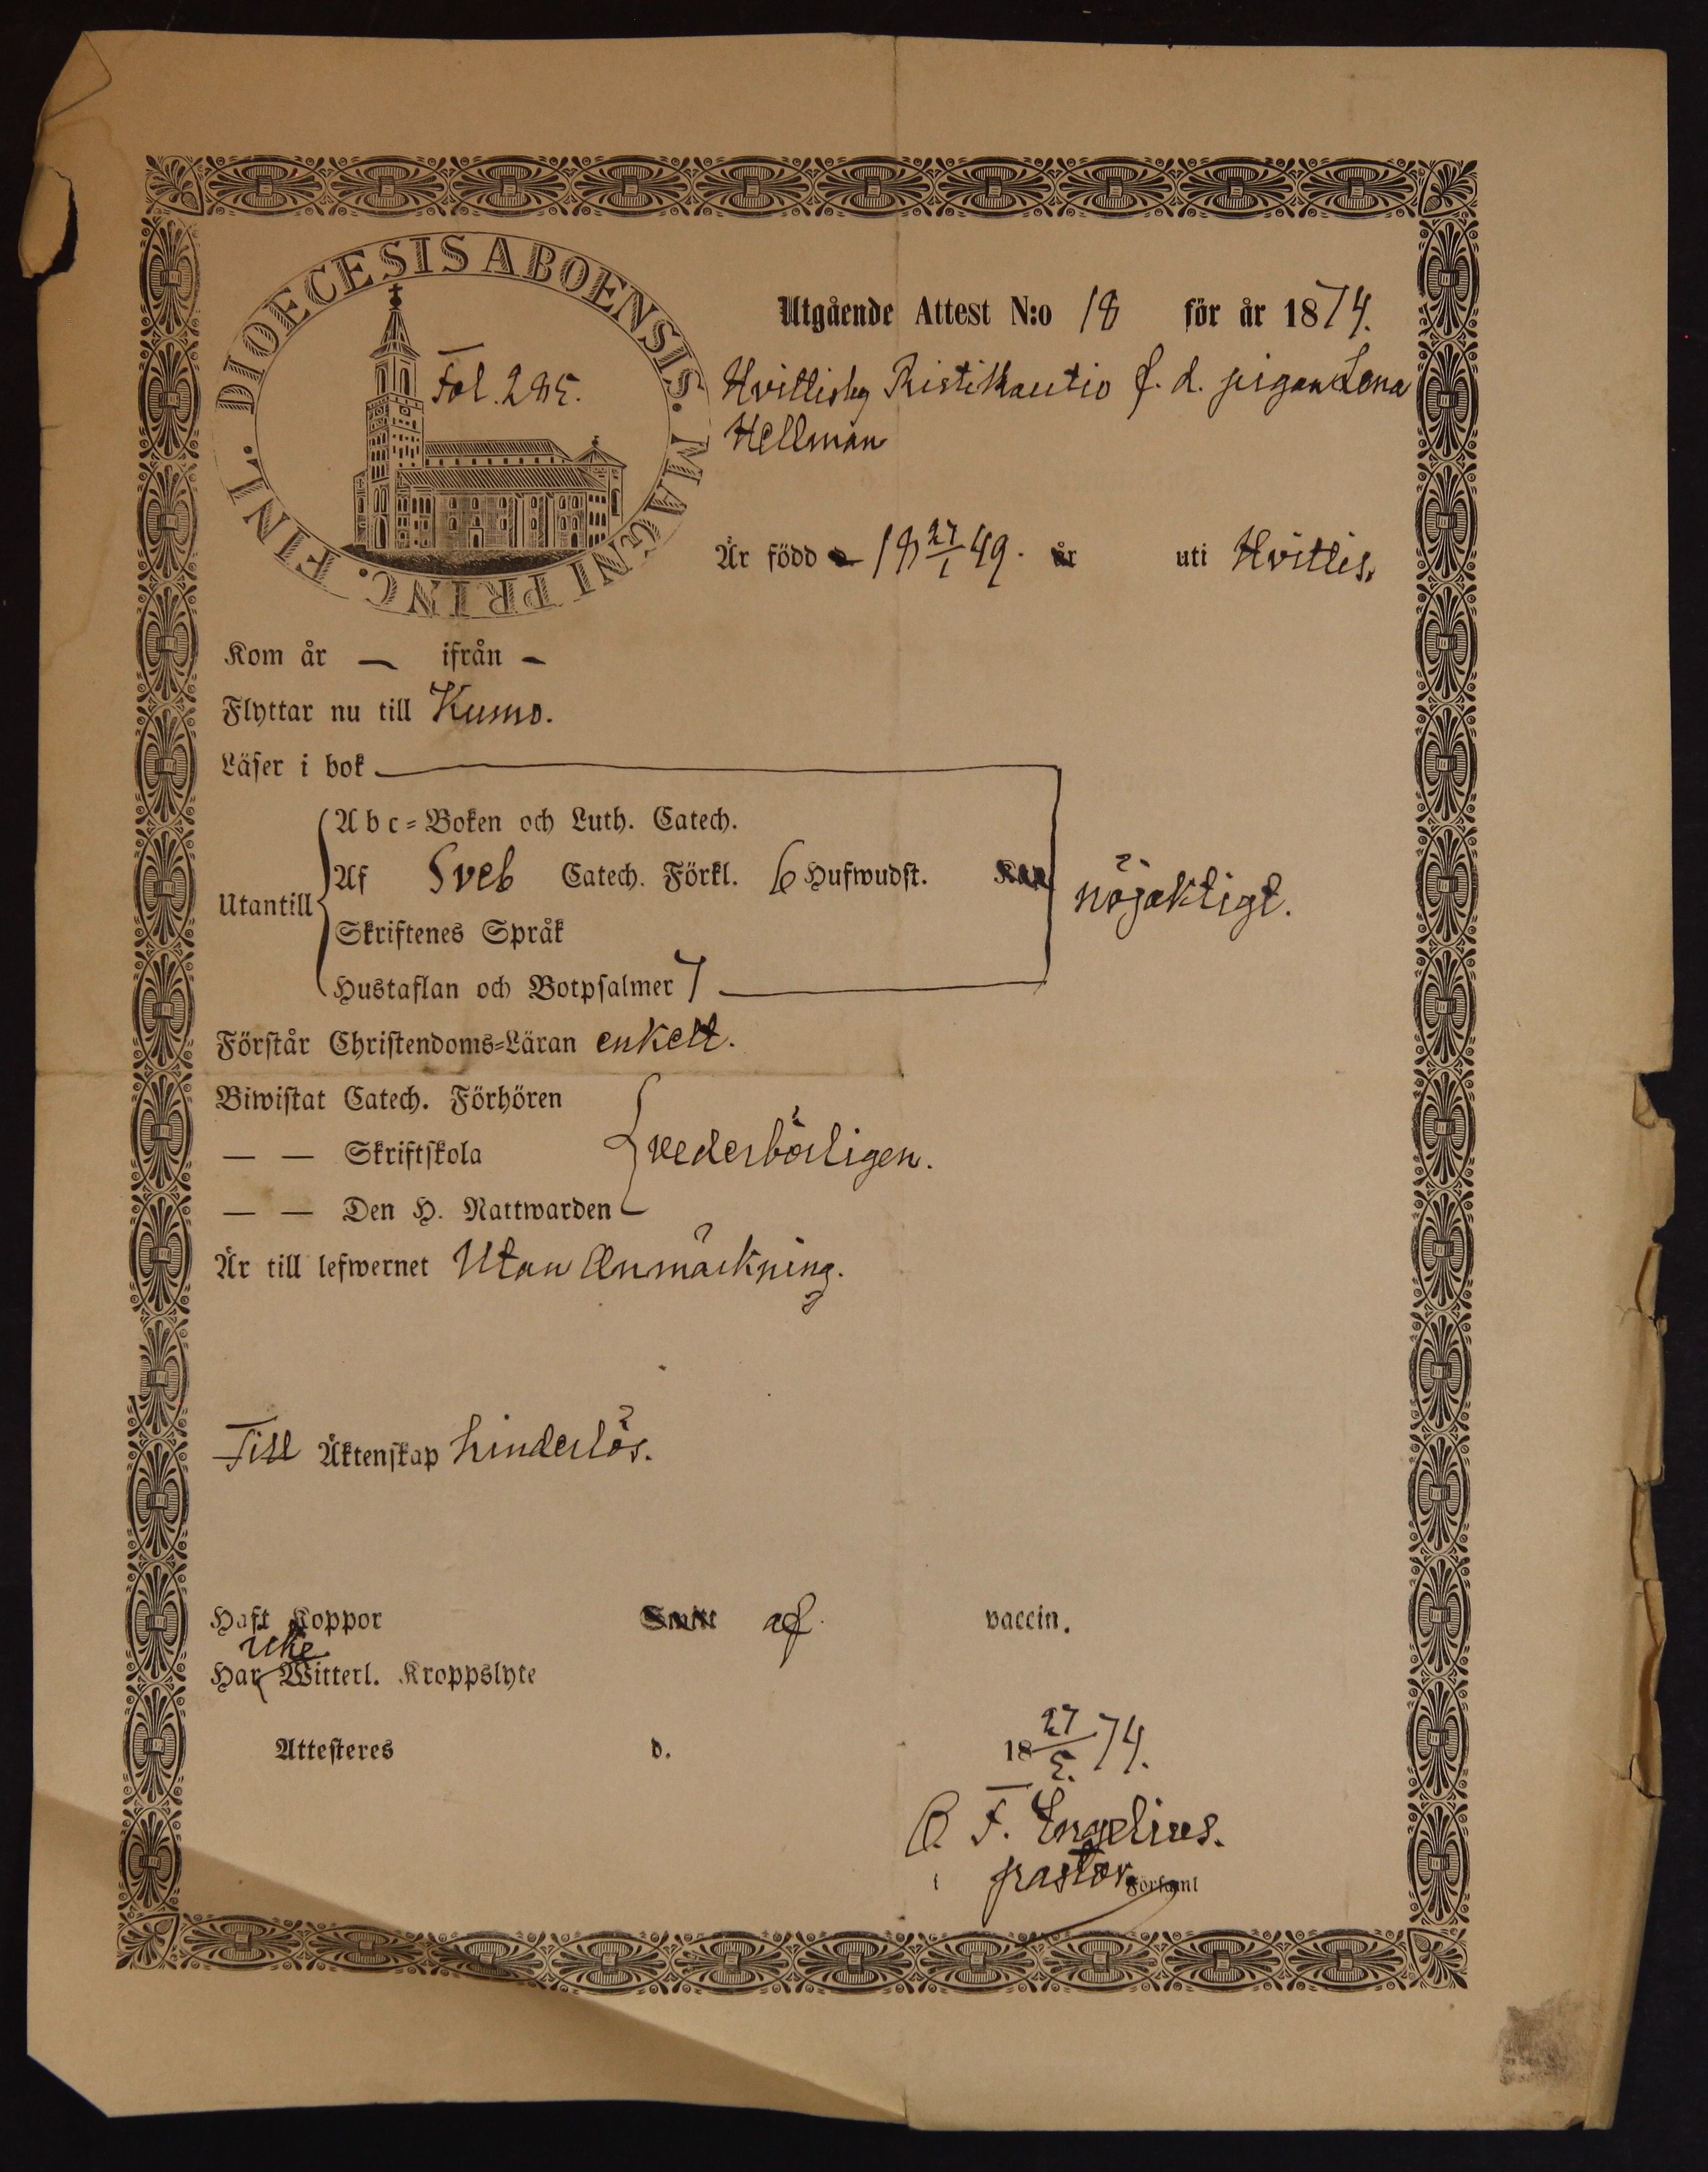 DIOECESIS ABOENSIS. MAGNI PRINC. FINL.
Fol. 295.
Utgående Attest N:o 18 för år 1874.
Hvittisby Ristikautio f. d. pigan Lena
Hellman
Är född 18 27/1 49. år uti Hvittis.
Kom år — ifrån —
Flyttar nu till Kumo.
Läser i bok
Utantill
Abc-Boken och Luth. Catech.
Af Sveb Catech. Förkl. 6 Hufwudst.
nöjaktigt.
Skriftenes Språk
Hustaflan och Botpsalmer 7
Förstår Christendoms-Läran enkelt.
Biwistat Catech. Förhören
— — Skriftskola
vederbörligen.
— — Den H. Nattwarden
Är till lefwernet Utan Anmärkning.
Till Äktenskap hinderlös.
Haft Koppor af vaccin.
icke
Har Witterl. Kroppslyte
Attesteres d. 18 27/5. 74.
F. Engelius.
i pastor Församl